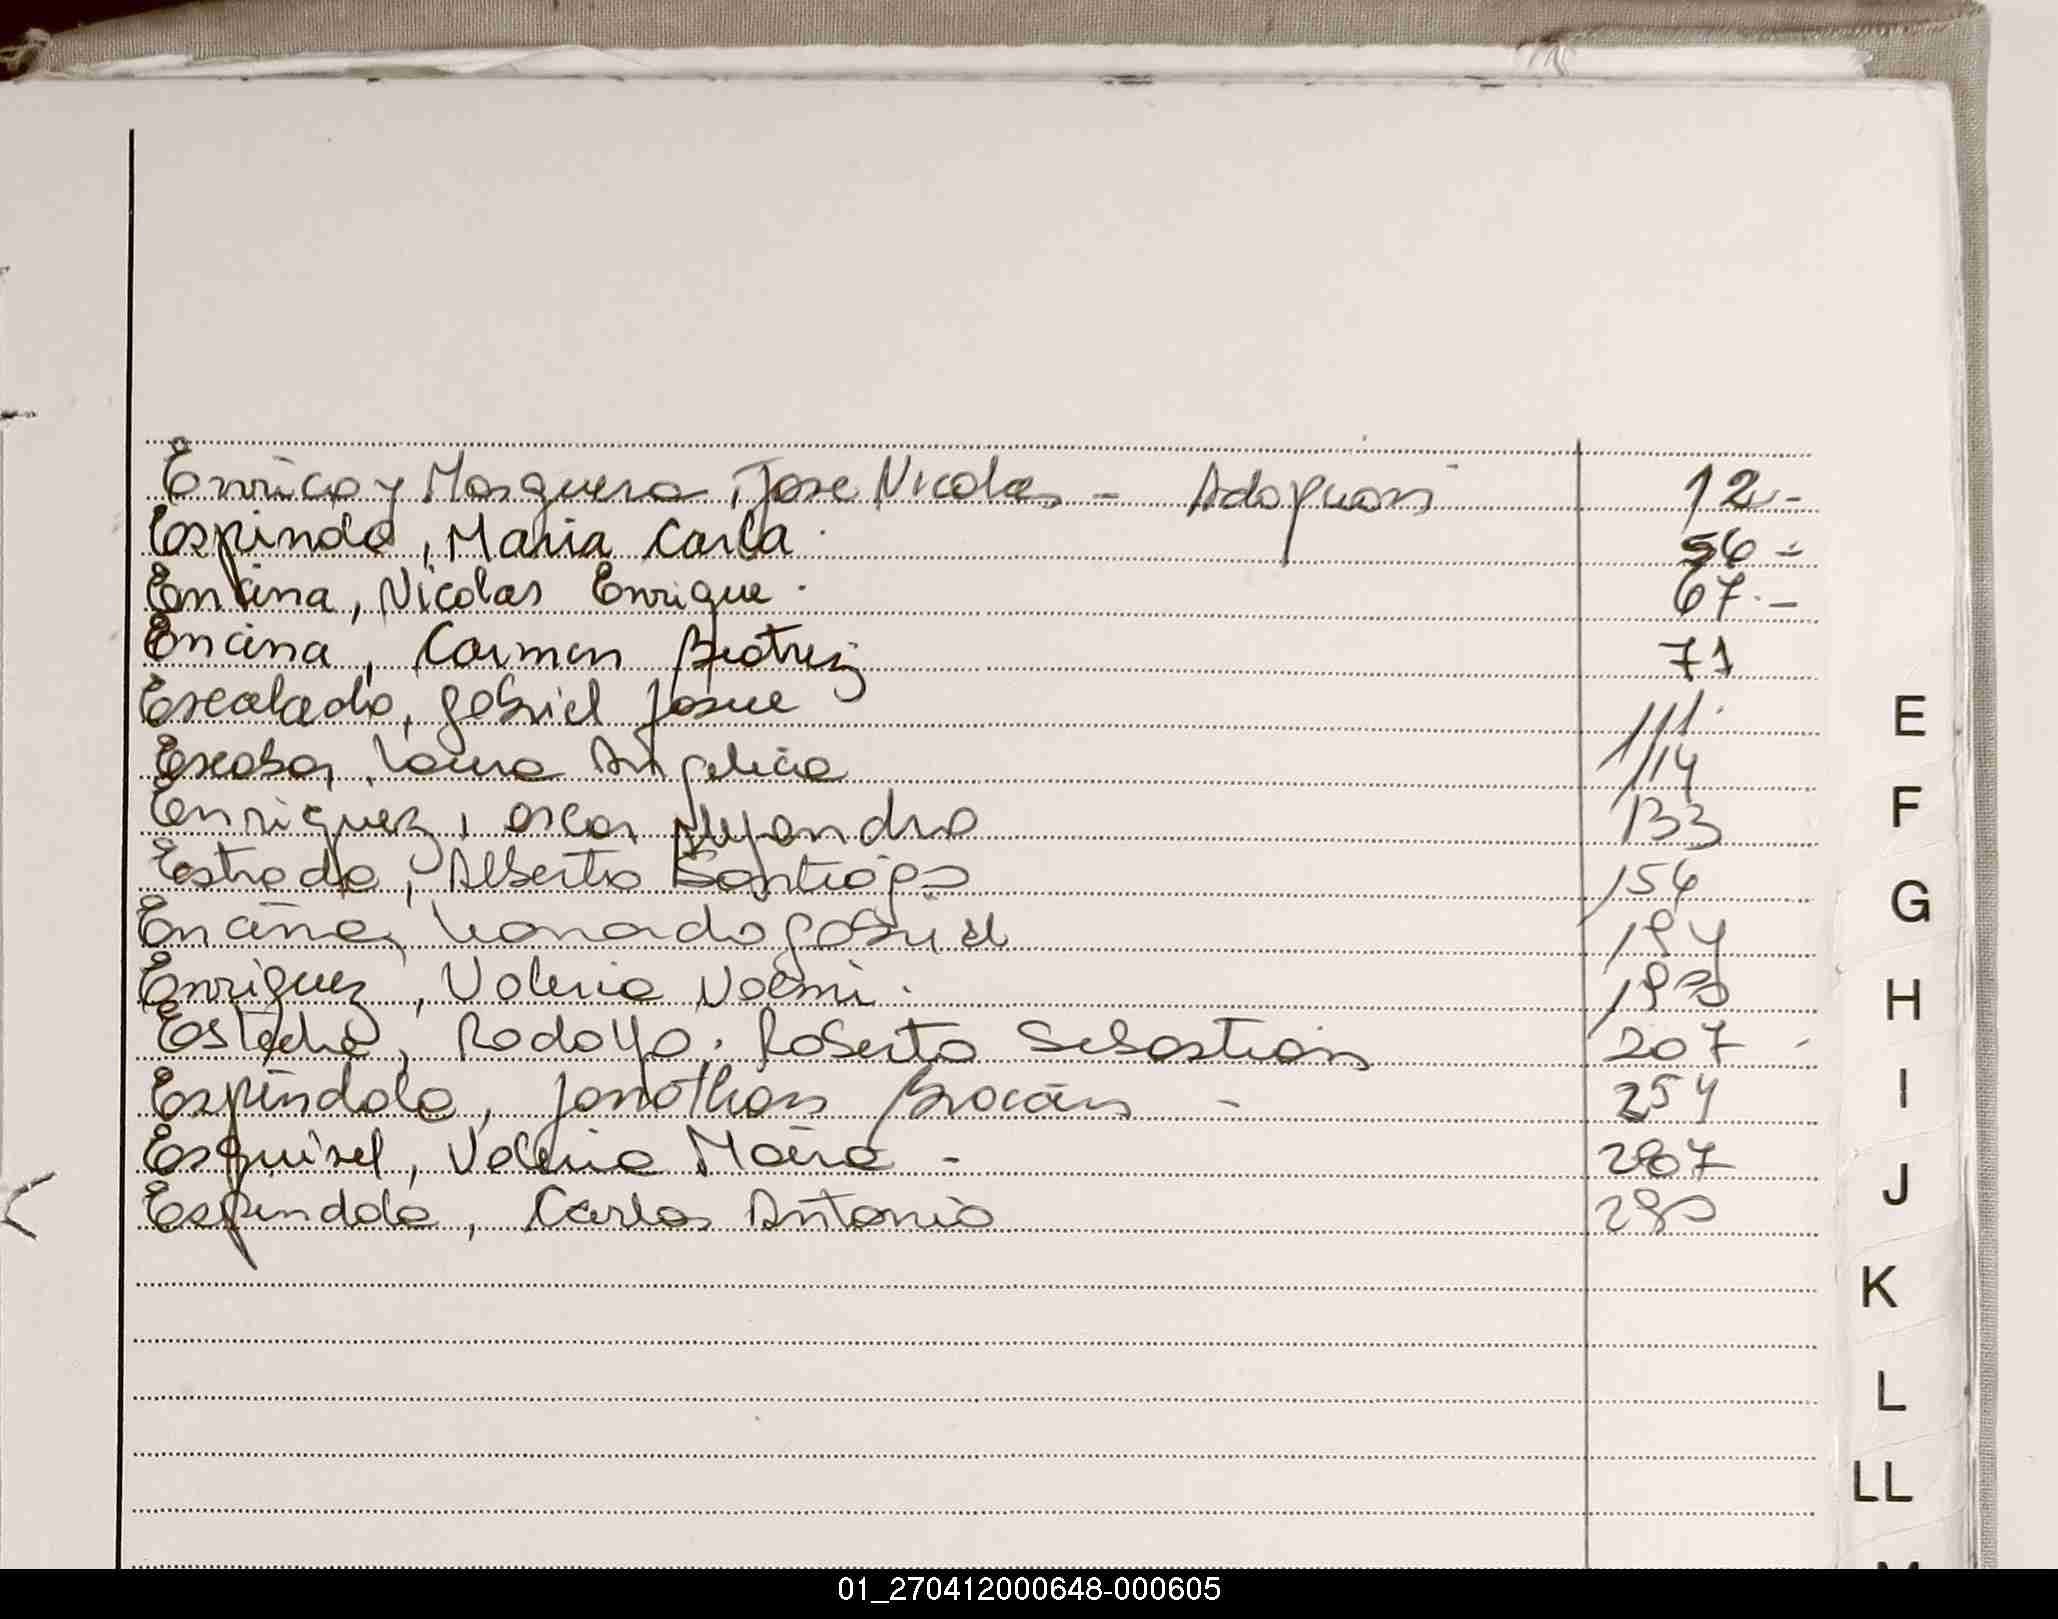 Enrico y Mosquera, Jose Nicolas - Adopcion 12.-
Espindo, Maria Carla. 56.-
Encina, Nicolas Enrique. 67.-
Encina, Carmen Beatriz 71
Escalado, Gabriel Josue 111.
Escobar, Laura Angelica 114
Enriquez, Oscar Alejandro 133
Estrada, Alberto Santiago 154
Encina, Leonardo Gabriel
Enriquez, Valeria Noemi.
Esteche, Rodolfo. Roberto Sebastian 207
Espindola, Jonathan 254
Esquivel, Valeria Maria -
Espindola, Carlos Antonio
E
F
G
H
I
J
K
L
LL
01_270412000648-000605